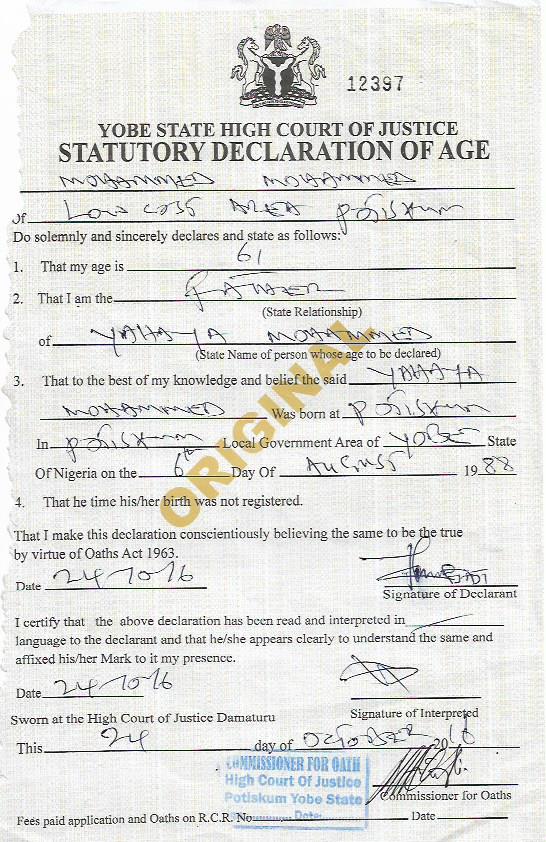 12397
YOBE STATE HIGH COURT OF JUSTICE
STATUTORY DECLARATION OF AGE
MOHAMMED MOHAMMED
of LOW COST AREA POTISKUM
Do solemnly and sincerely declares and state as follows:
1. That my age is 61
2. That I am the FATHER
(State Relationship)
of YAHAYA MOHAMMED
(State Name of person whose age to be declared)
3. That to the best of my knowledge and belief the said YAHAYA
MOHAMMED Was born at POTISKUM
In POTISKUM Local Government Area of YOBE State
Of Nigeria on the 6th Day Of AUGUST 1988
4. That he time his/her birth was not registered.
ORIGINAL
That I make this declaration conscientiously believing the same to be the true
by virtue of Oaths Act 1963.
Date 24-10-16
Signature of Declarant
I certify that the above declaration has been read and interpreted in
language to the declarant and that he/she appears clearly to understand the same and
affixed his/her Mark to it my presence.
Date 24-10-16
Signature of Interpreted
Sworn at the High Court of Justice Damaturu
This 24 day of OCTOBER 2016
COMMISSIONER FOR OATH
High Court Of Justice
Potiskum Yobe State
Date:
Commissioner for Oaths
Fees paid application and Oaths on R.C.R. No Date